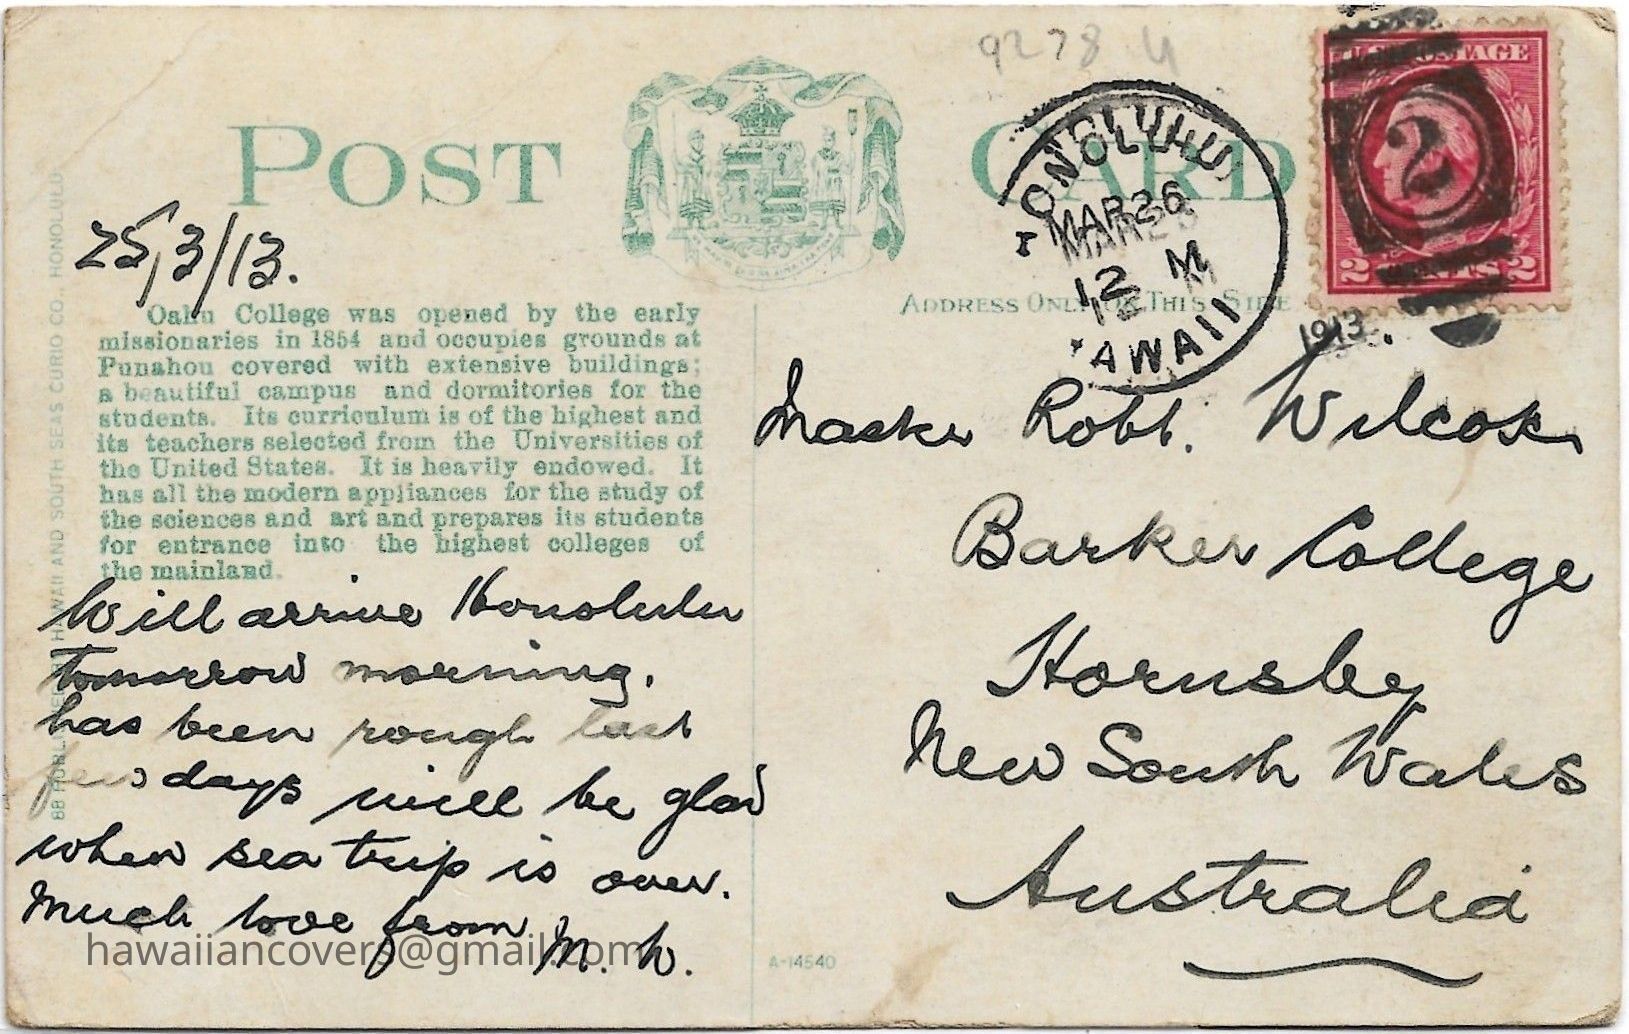 9278
POST CARD
25,3/13.
HONOLULU
MAR 26
12 M
HAWAII
1913.
U.S. POSTAGE
2
2 CENTS 2
ADDRESS ONLY ON THIS SIDE
Oahu College was opened by the early
missionaries in 1854 and occupies grounds at
Punahou covered with extensive buildings;
a beautiful campus and dormitories for the
students. Its curriculum is of the highest and
its teachers selected from the Universities of
the United States. It is heavily endowed. It
has all the modern appliances for the study of
the sciences and art and prepares its students
for entrance into the highest colleges of
the mainland.
Will arrive Honolulu
tomorrow morning.
has been rough last
few days will be glad
when sea trip is over.
Much love from M. W.
Master Robt. Wilcox
Barker College
Hornsby
New South Wales
Australia
88 PUBLISHED HAWAII AND SOUTH SEAS CURIO CO., HONOLULU
A-14540
hawaiiancovers@gmail.com